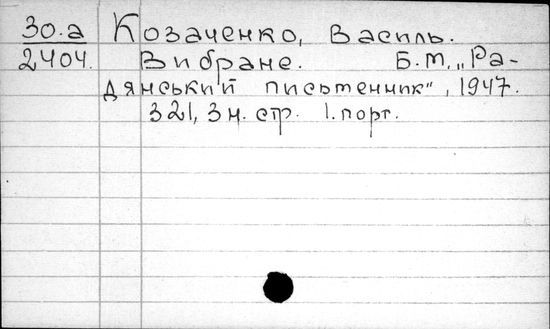 30.a Козаченко, Василь.
2404. Вибране. Б.М. „Ра-
дянський письменник", 1947.
321, 3 н. стр. 1. порт.